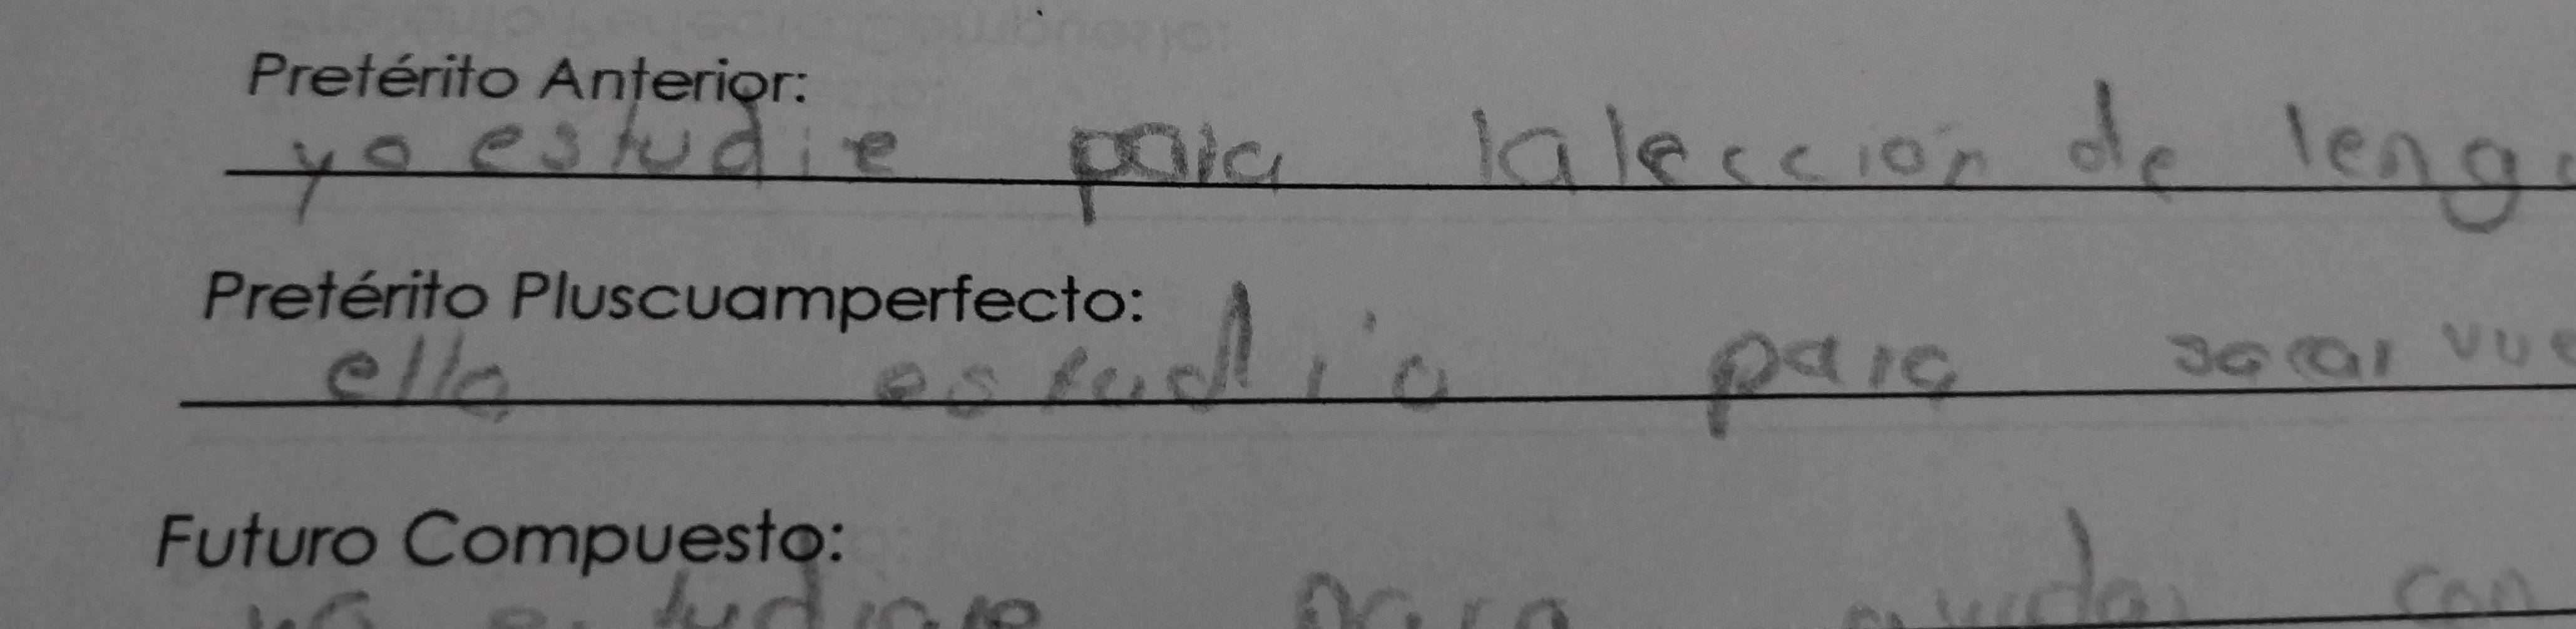 Pretérito Anterior:
yo estudie para la leccion de leng
Pretérito Pluscuamperfecto:
ella estudio para sacar
Futuro Compuesto:
yo estudiare para ayudar con